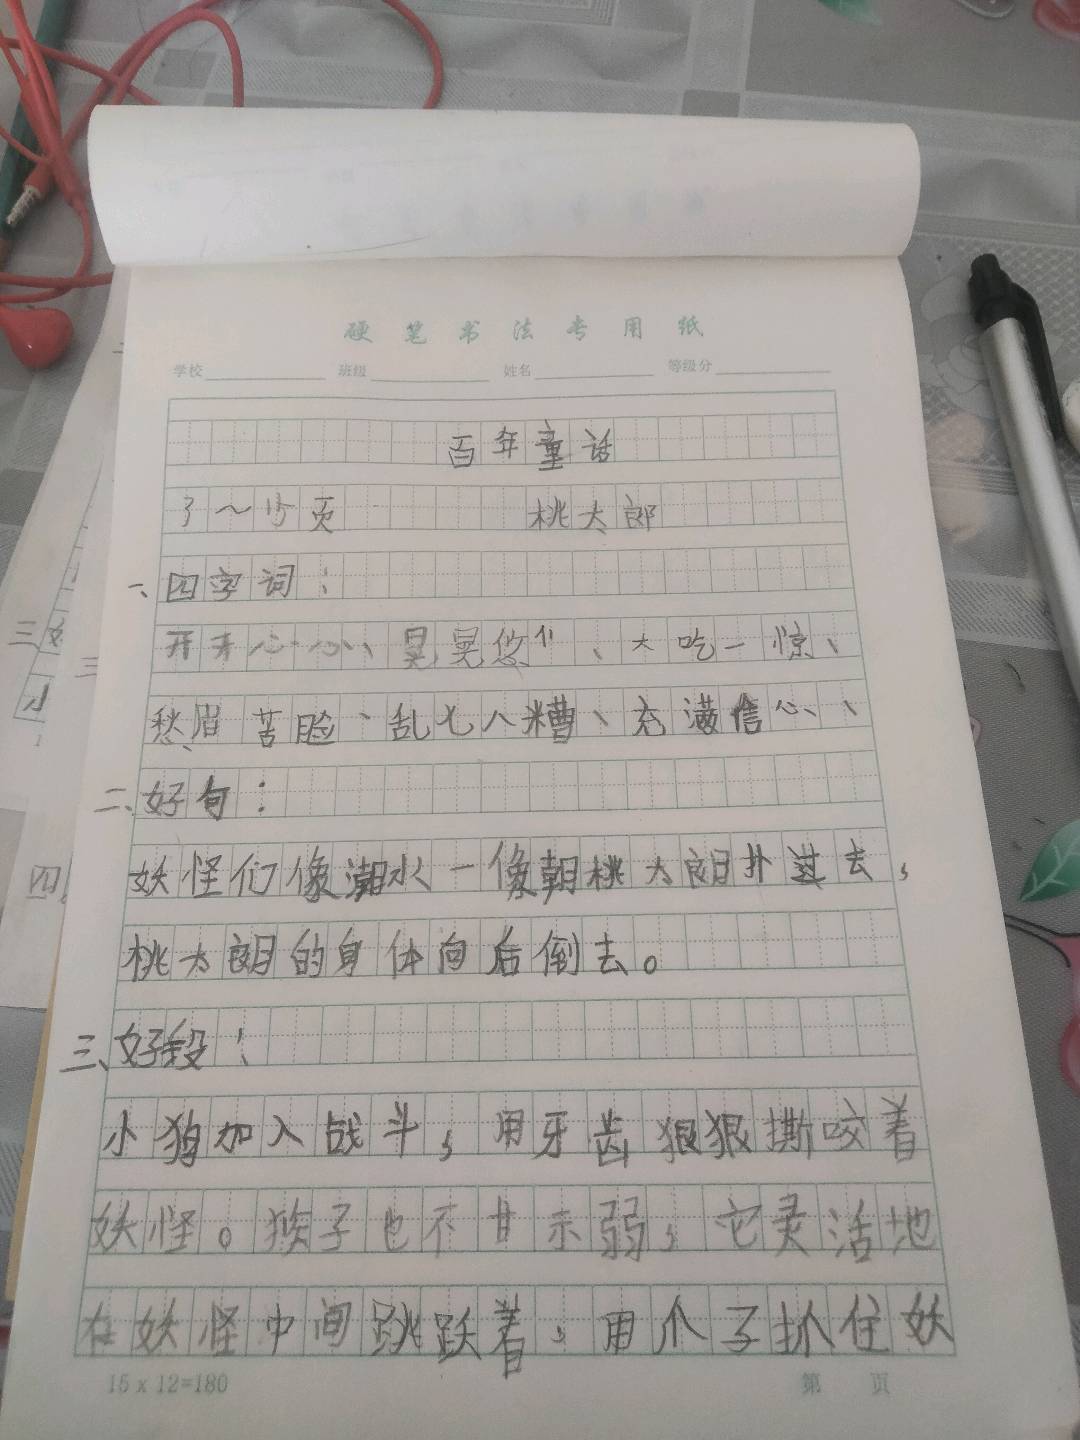 硬笔书法专用纸
学校 班级 姓名 等级分
百年童话
3～15页 桃太郎
一、四字词：
开开心心、晃晃悠悠、大吃一惊、
愁眉苦脸、乱七八糟、充满信心、
二、好句：
妖怪们像潮水一像朝桃太郎扑过去，
桃太郎的身体向后倒去。
三、好段：
小狗加入战斗，用牙齿狠狠撕咬着
妖怪。猴子也不甘示弱，它灵活地
在妖怪中间跳跃着，用爪子抓住妖
15x12=180
第 页
三
三
四